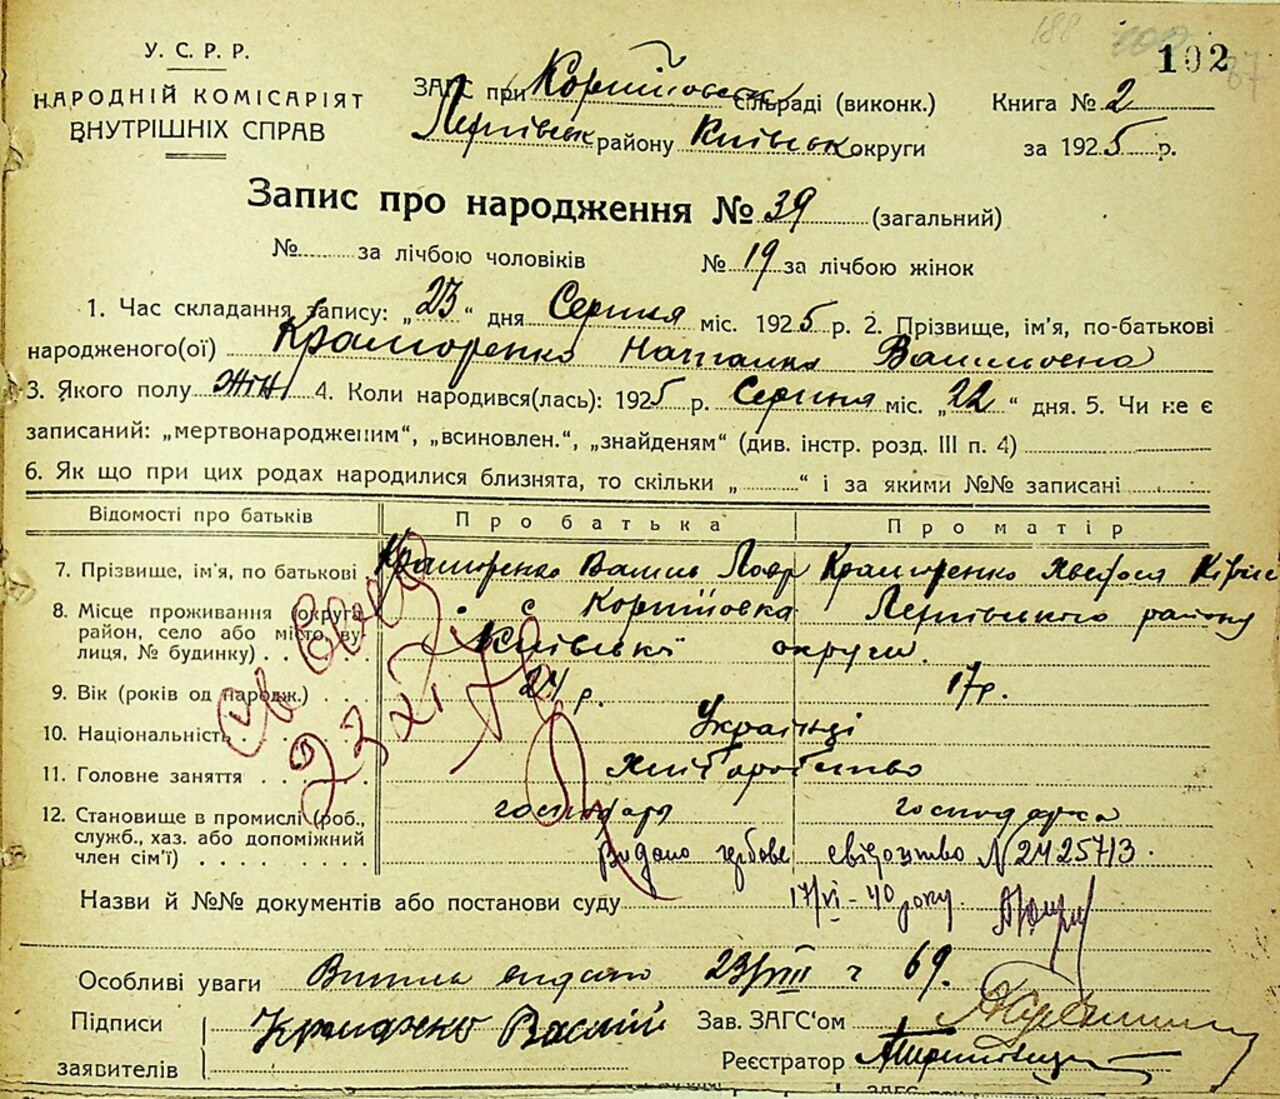 188
102
У. С. Р. Р.
НАРОДНІЙ КОМІСАРІЯТ
ВНУТРІШНІХ СПРАВ
ЗАГС при сільраді (виконк.) Книга № 2
району Київськ округи за 1925 р.
Запис про народження № 39 (загальний)
№ за лічбою чоловіків № 19 за лічбою жінок
1. Час складання запису: „23“ дня Серпня міс. 1925 р. 2. Прізвище, ім'я, по-батькові
народженого(ої) Краморенко Наталка Васильовна
3. Якого полу жін 4. Коли народився(лась): 1925 р. Серпня міс. „22“ дня. 5. Чи не є
записаний: „мертвонародженим“, „всиновлен.“, „знайденям“ (див. інстр. розд. III п. 4)
6. Як що при цих родах народилися близнята, то скільки „ “ і за якими №№ записані
Відомості про батьків Про батька Про матір
7. Прізвище, ім'я, по батькові Краморенко Василь Лавр Краморенко
8. Місце проживання (округа, с
район, село або місто, ву- району
лиця, № будинку) Київської округи.
9. Вік (років од народж.) 24 р. 17 р.
10. Національність Українці
11. Головне заняття Хліборобство
12. Становище в промислі (роб., господарь господарка
служб., хаз. або допоміжний
член сім'ї) Видано гербове свідоцтво N 2425713.
Назви й №№ документів або постанови суду 17/VI-40 року.
Особливі уваги видано 23/VIII 69.
Підписи
заявителів
Василь
Зав. ЗАГС'ом
Реєстратор